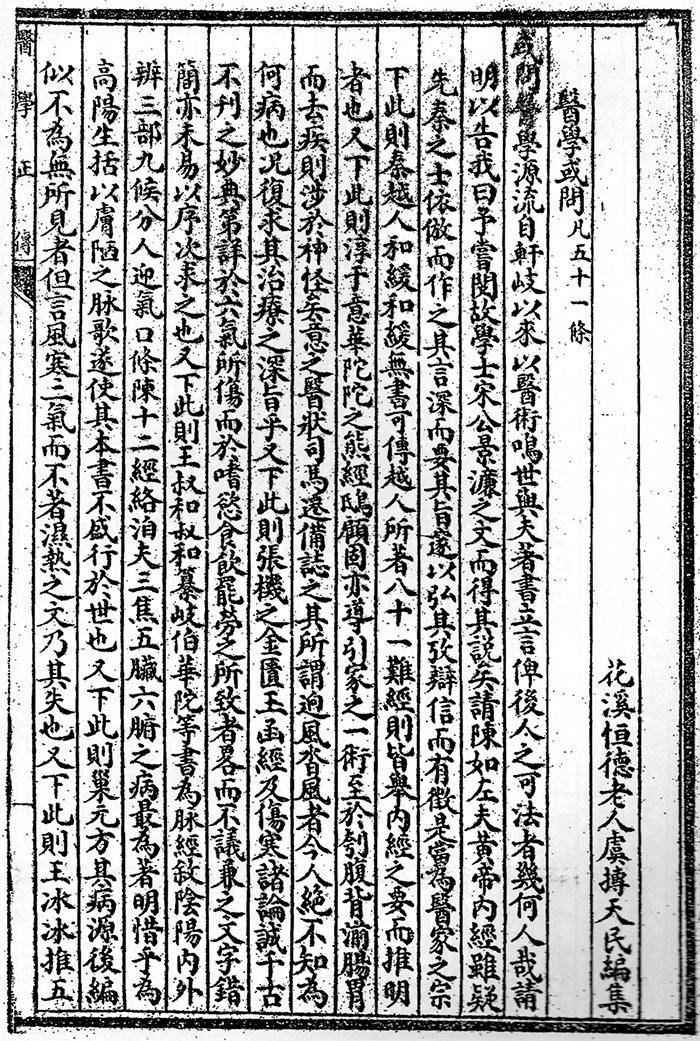 花溪恒德老人虞摶天民編集
醫學或問凡五十一條
或問醫學源流自軒岐以來以醫術鳴世與夫著書立言俾後人之可法者幾何人哉請
明以告我曰予嘗閱故學士宋公景濂之文而得其說矣請陳如左夫黃帝內經雖疑
先秦之士依倣而作之其言深而要其旨邃以弘其攷辯信而有徵是當為醫家之宗
下此則秦越人和緩和緩無書可傳越人所著八十一難經則皆舉內經之要而推明
者也又下此則淳于意華陀陀之熊經鴟顧固亦導引家之一術至於刳腹背湔腸胃
而去疾則涉於神怪矣意之醫狀司馬遷備誌之其所謂迥風沓風者今人絕不知為
何病也况復求其治療之深旨乎又下此則張機之金匱玉函經及傷寒諸論誠千古
不刊之妙典第詳於六氣所傷而於嗜慾食飲罷勞之所致者畧而不議兼之文字錯
簡亦未易以序次求之也又下此則王叔和叔和纂岐伯華陀等書為脉經敘陰陽內外
辨三部九候分人迎氣口條陳十二經絡洎夫三焦五臟六腑之病最為著明惜乎為
高陽生括以膚陋之脉歌遂使其本書不盛行於世也又下此則巢元方其病源後編
似不為無所見者但言風寒二氣而不著濕熱之文乃其失也又下此則王冰冰推五
醫學正傳